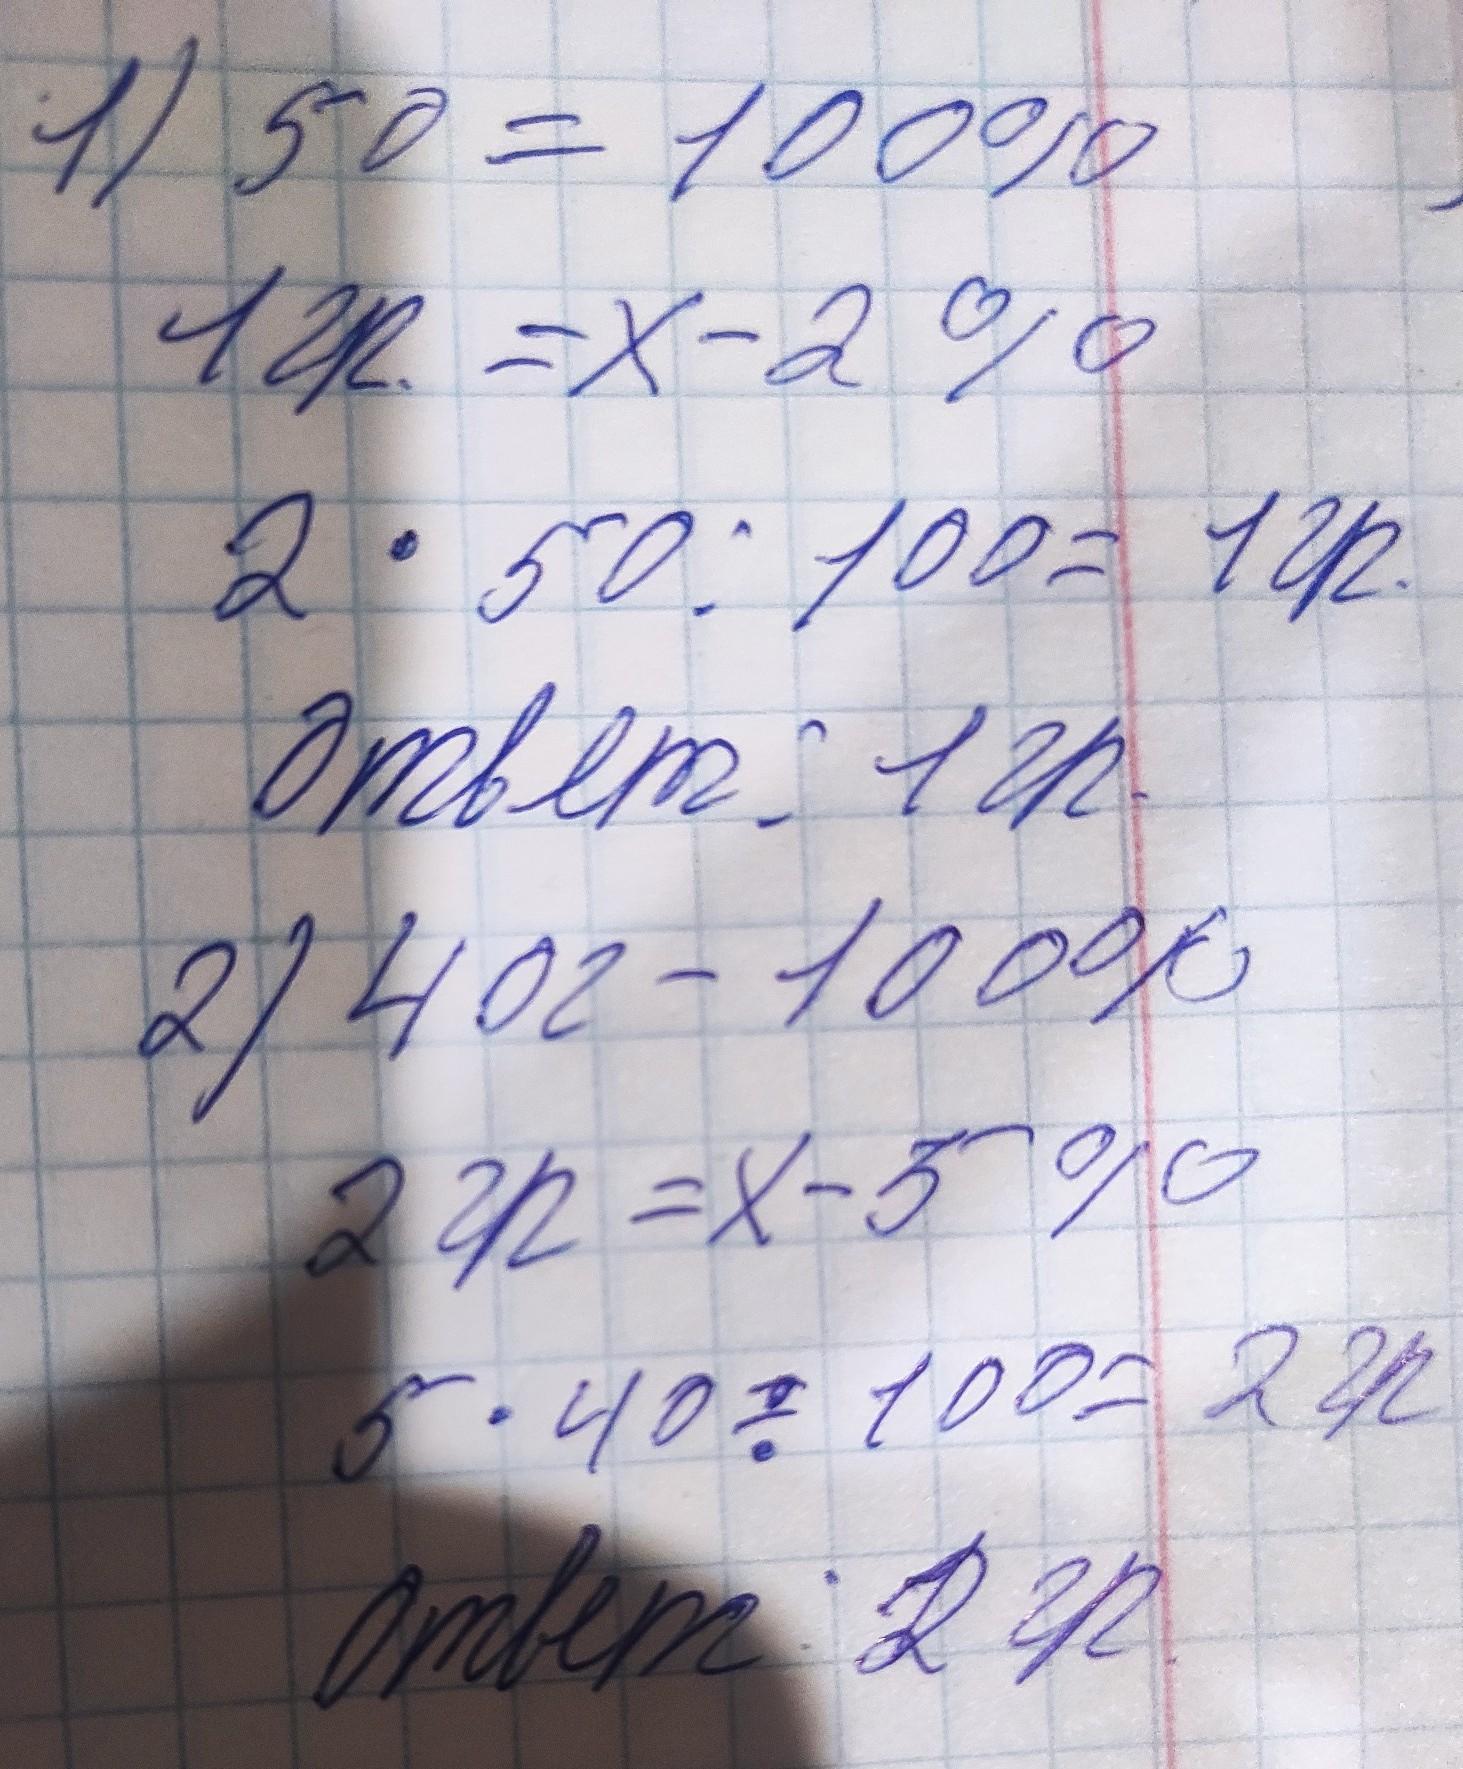 1) 50 = 100%
1 гр. = х - 2 %
2 · 50 : 100 = 1 гр.
Ответ: 1 гр.
2) 40г - 100%
2 гр = х - 5 %
5 · 40 ÷ 100 = 2 гр
Ответ: 2 гр.